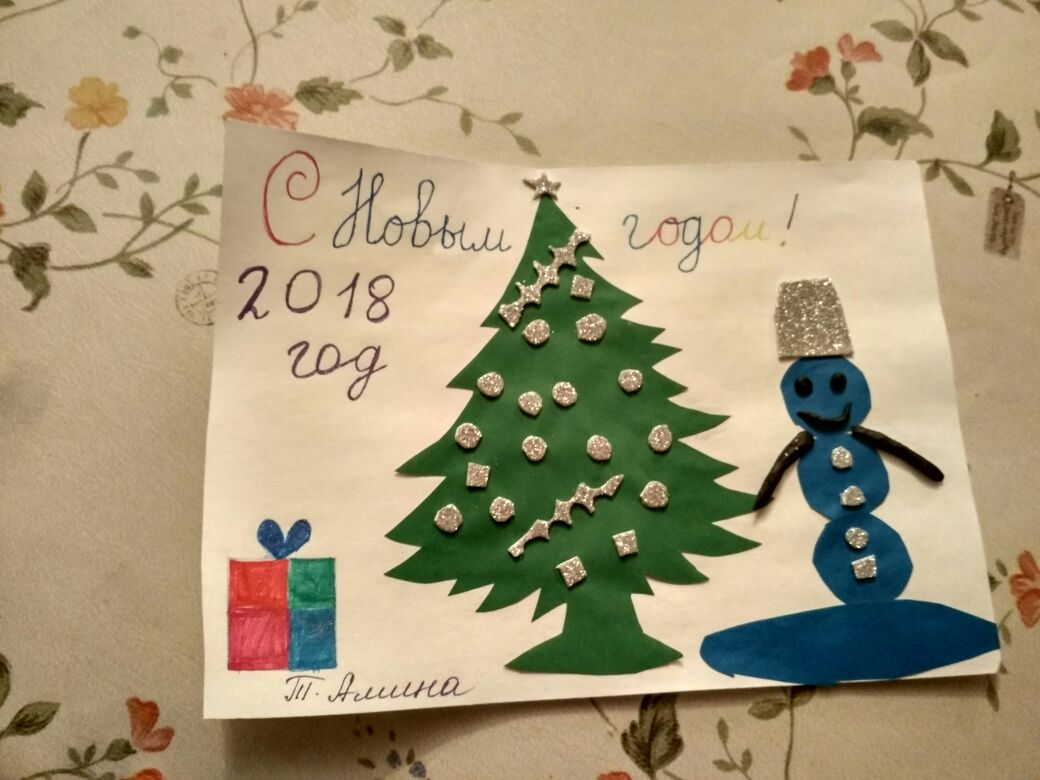 С Новым годом!
2018
год
Т. Алина